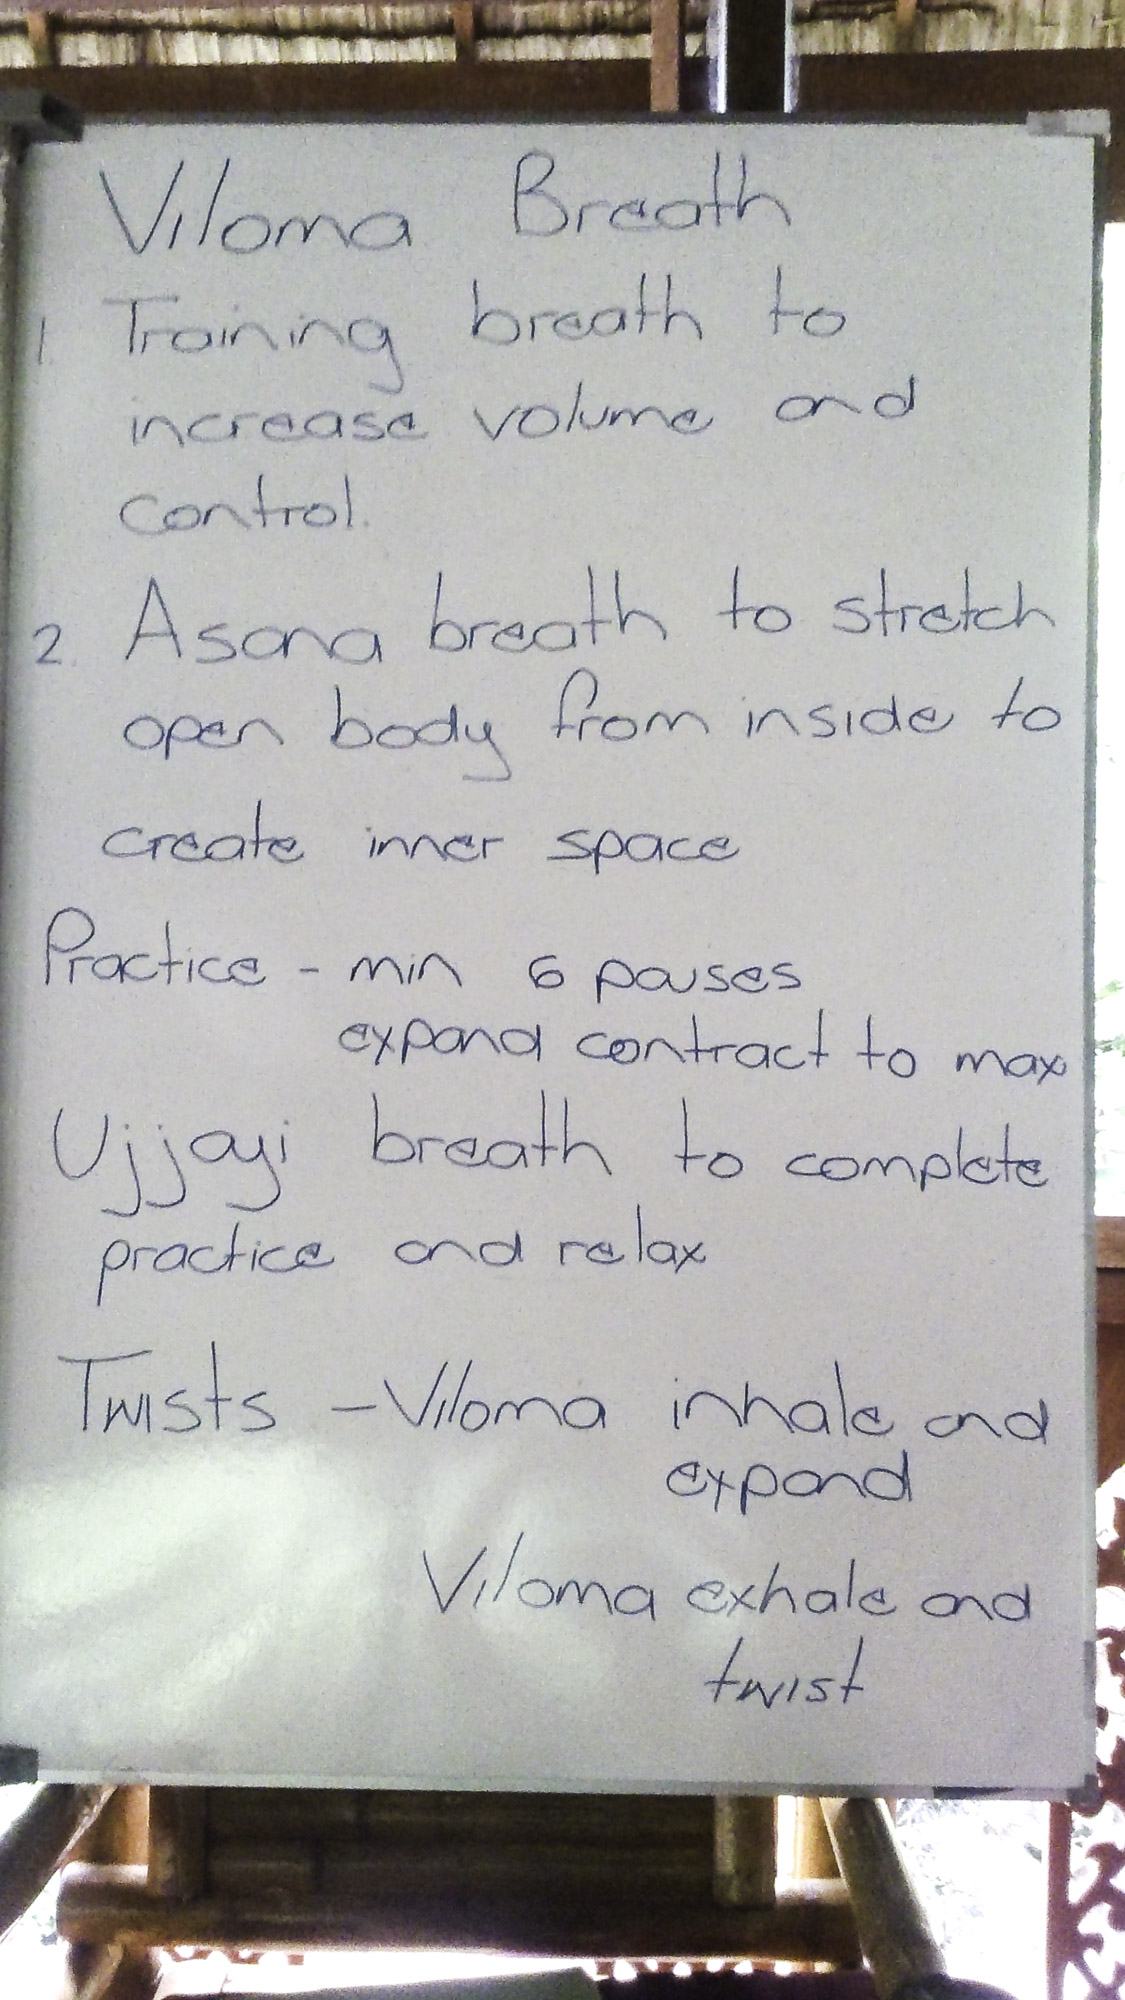 Viloma Breath
1. Training breath to
increase volume and
control.
2. Asana breath to stretch
open body from inside to
create inner space
Practice - min 6 pauses
expand contract to max
Ujjayi breath to complete
practice and relax
Twists - Viloma inhale and
expand
Viloma exhale and
twist